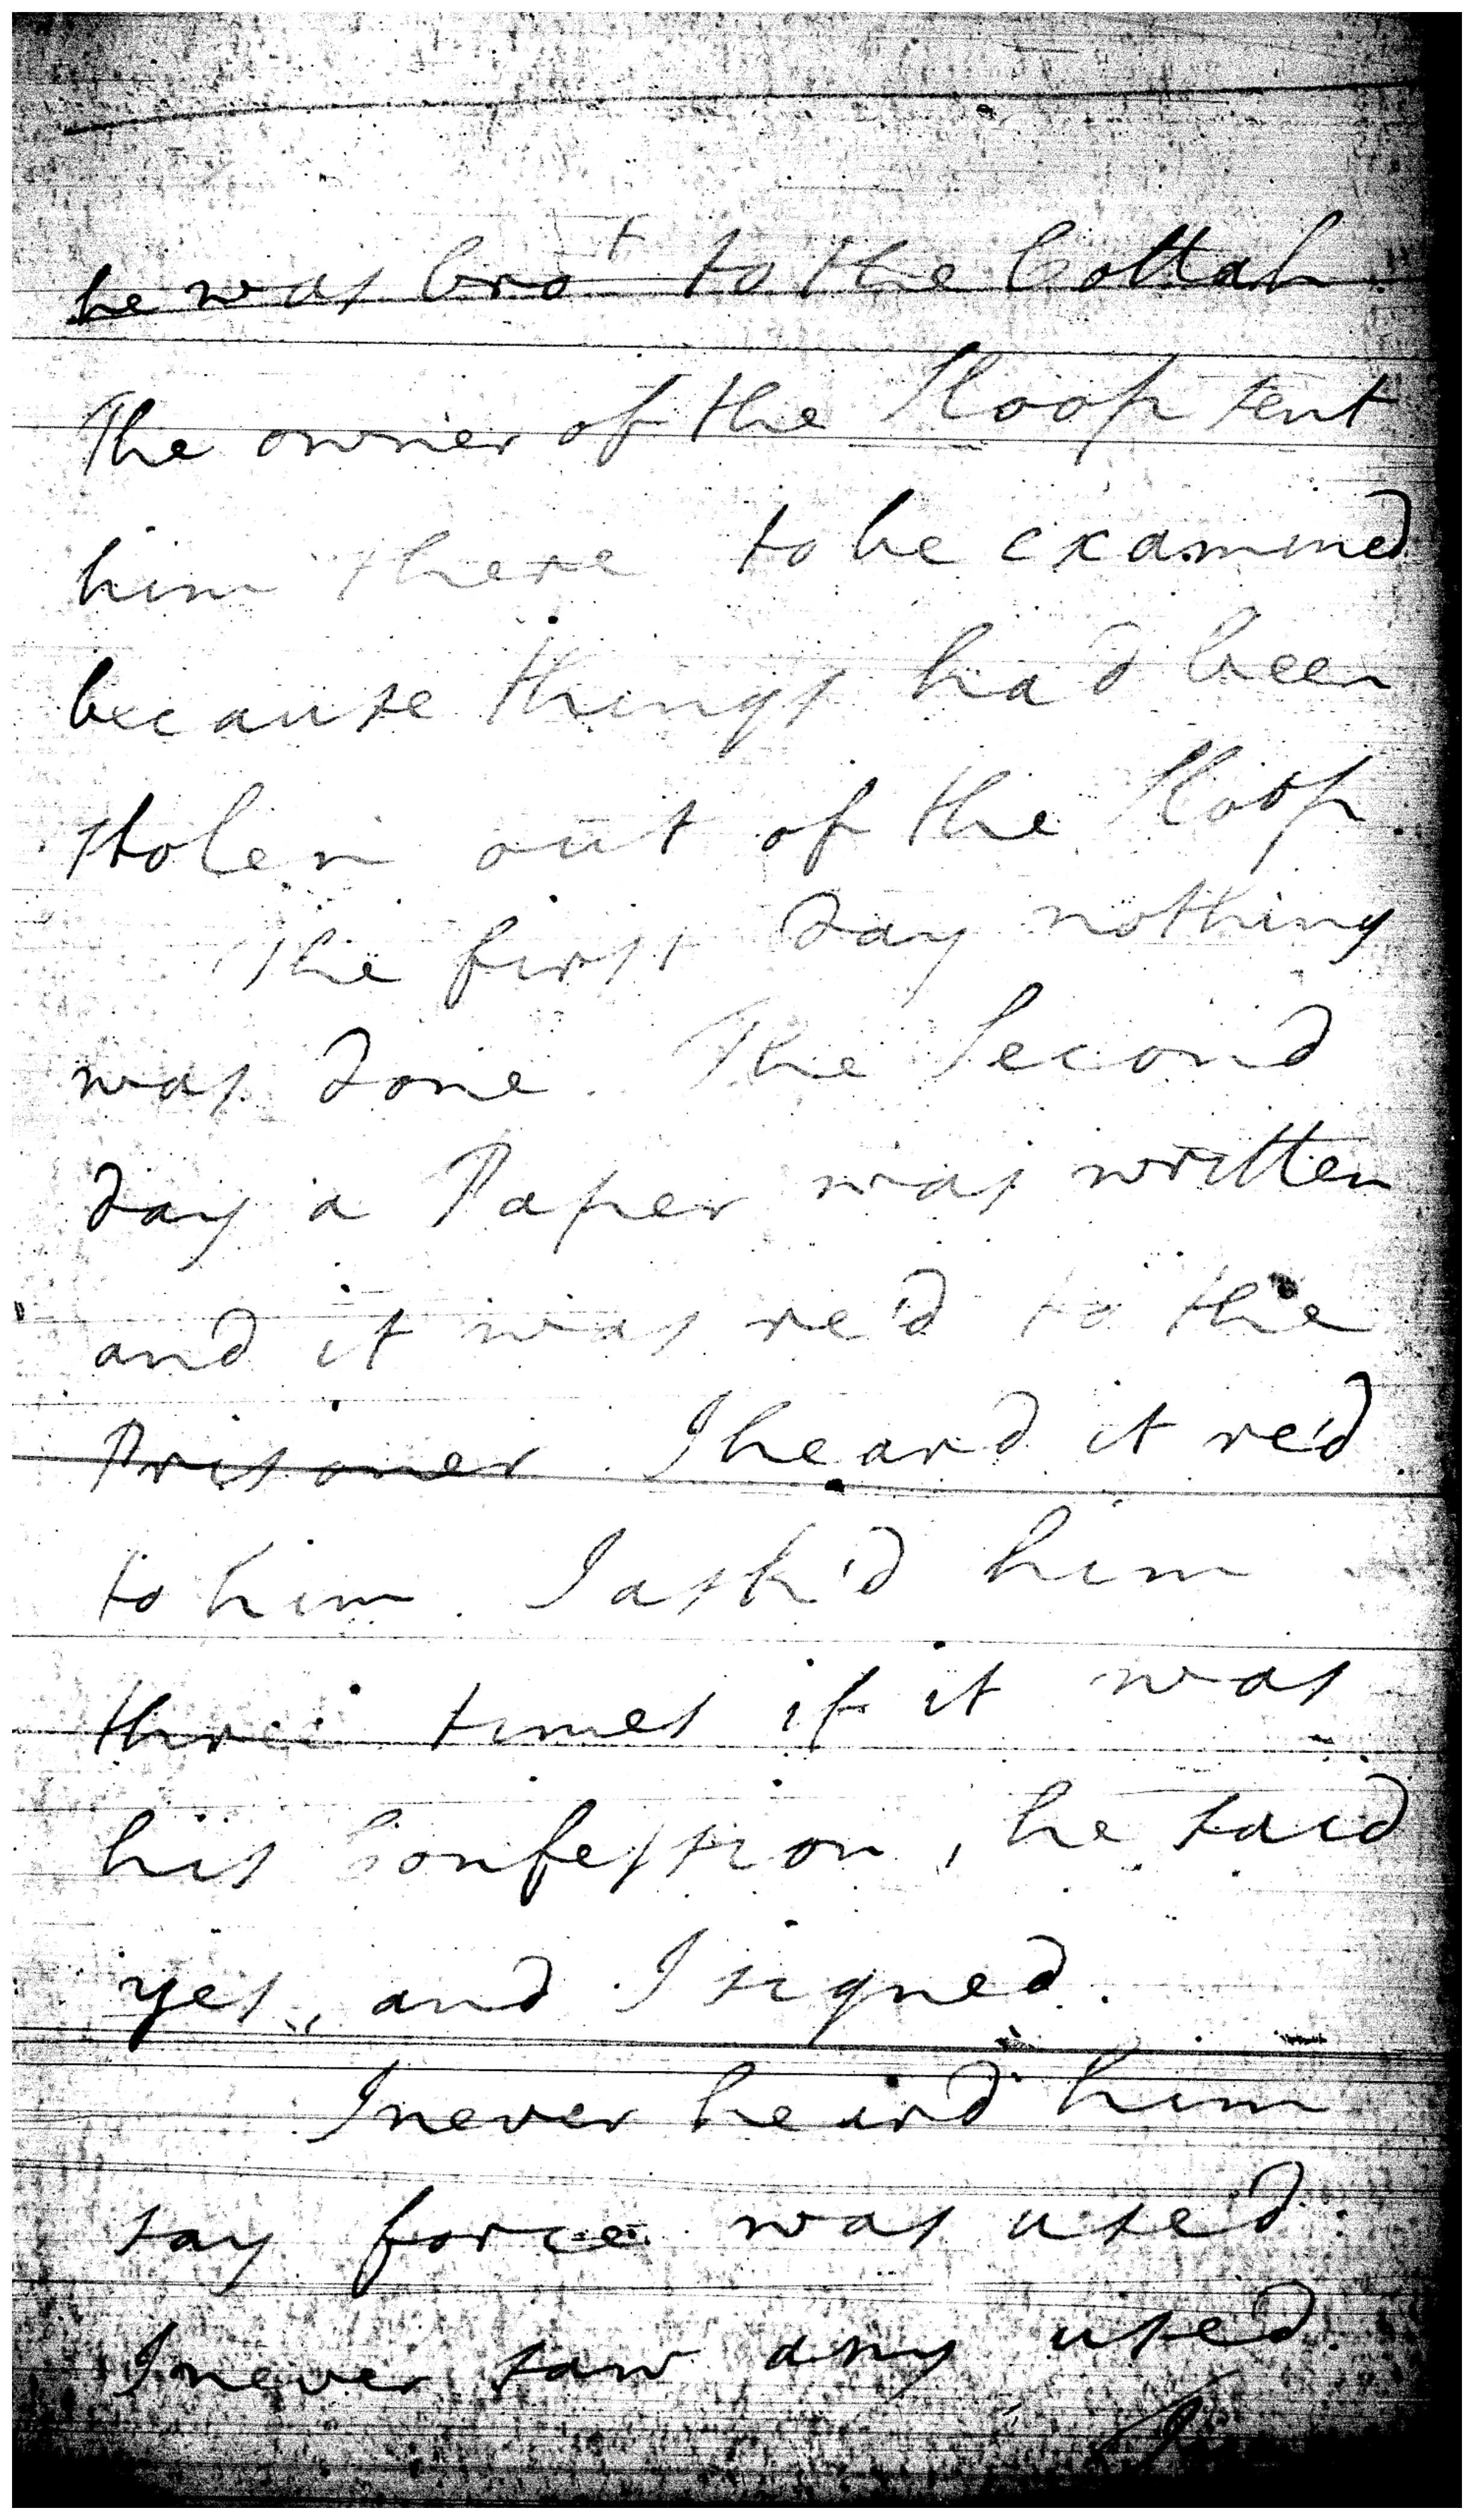 he was bro^t to the Cottah.
The owner of the Sloop sent
him there to be examined
because things had been
stolen out of the Sloop.
The first day nothing
was done. The Second
day a Paper was written
and it was re'd to the
Prisoner. I heard it re'd
to him. I ask'd him
three times if it was
his Confession, he said
yes, and I signed.
I never heard him
say force was used.
I never saw any used.